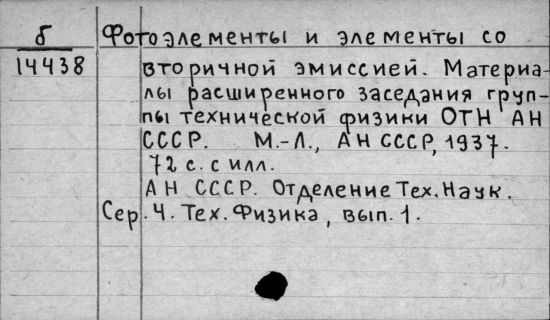 б
14438
Фотоэлементы и элементы со
вторичной эмиссией. Материа-
лы расширенного заседания груп-
пы технической физики ОТН АН
СССР. М.-Л., АН СССР, 1937.
72 с. с илл.
АН СССР. Отделение Тех. Наук.
Сер. 4. Тех. Физика, вып. 1.